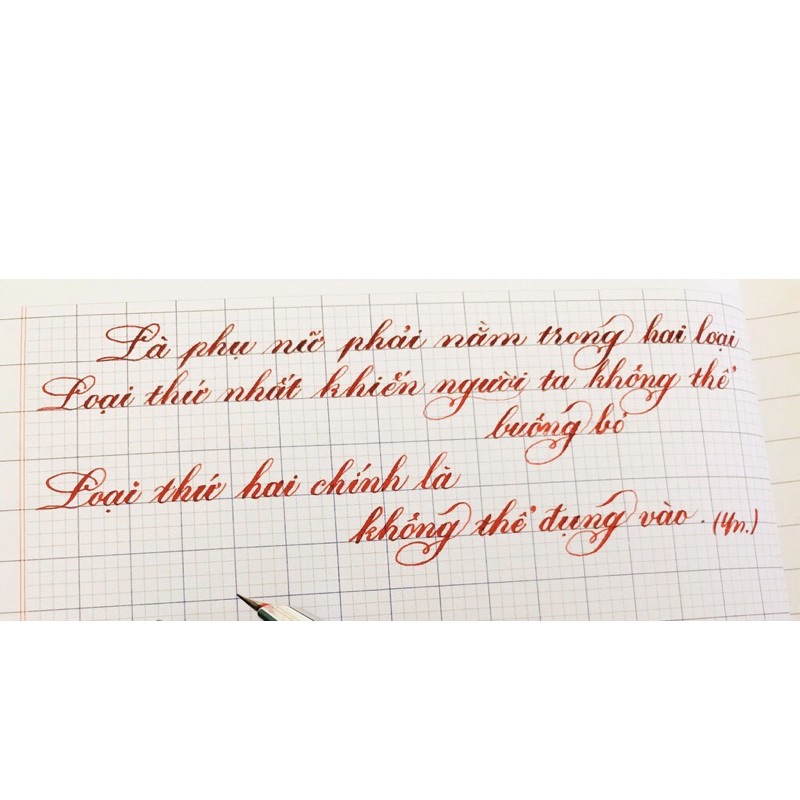 Là phụ nữ phải nằm trong hai loại
Loại thứ nhất khiến người ta không thể
buông bỏ
Loại thứ hai chính là
không thể đụng vào. (Yn.)